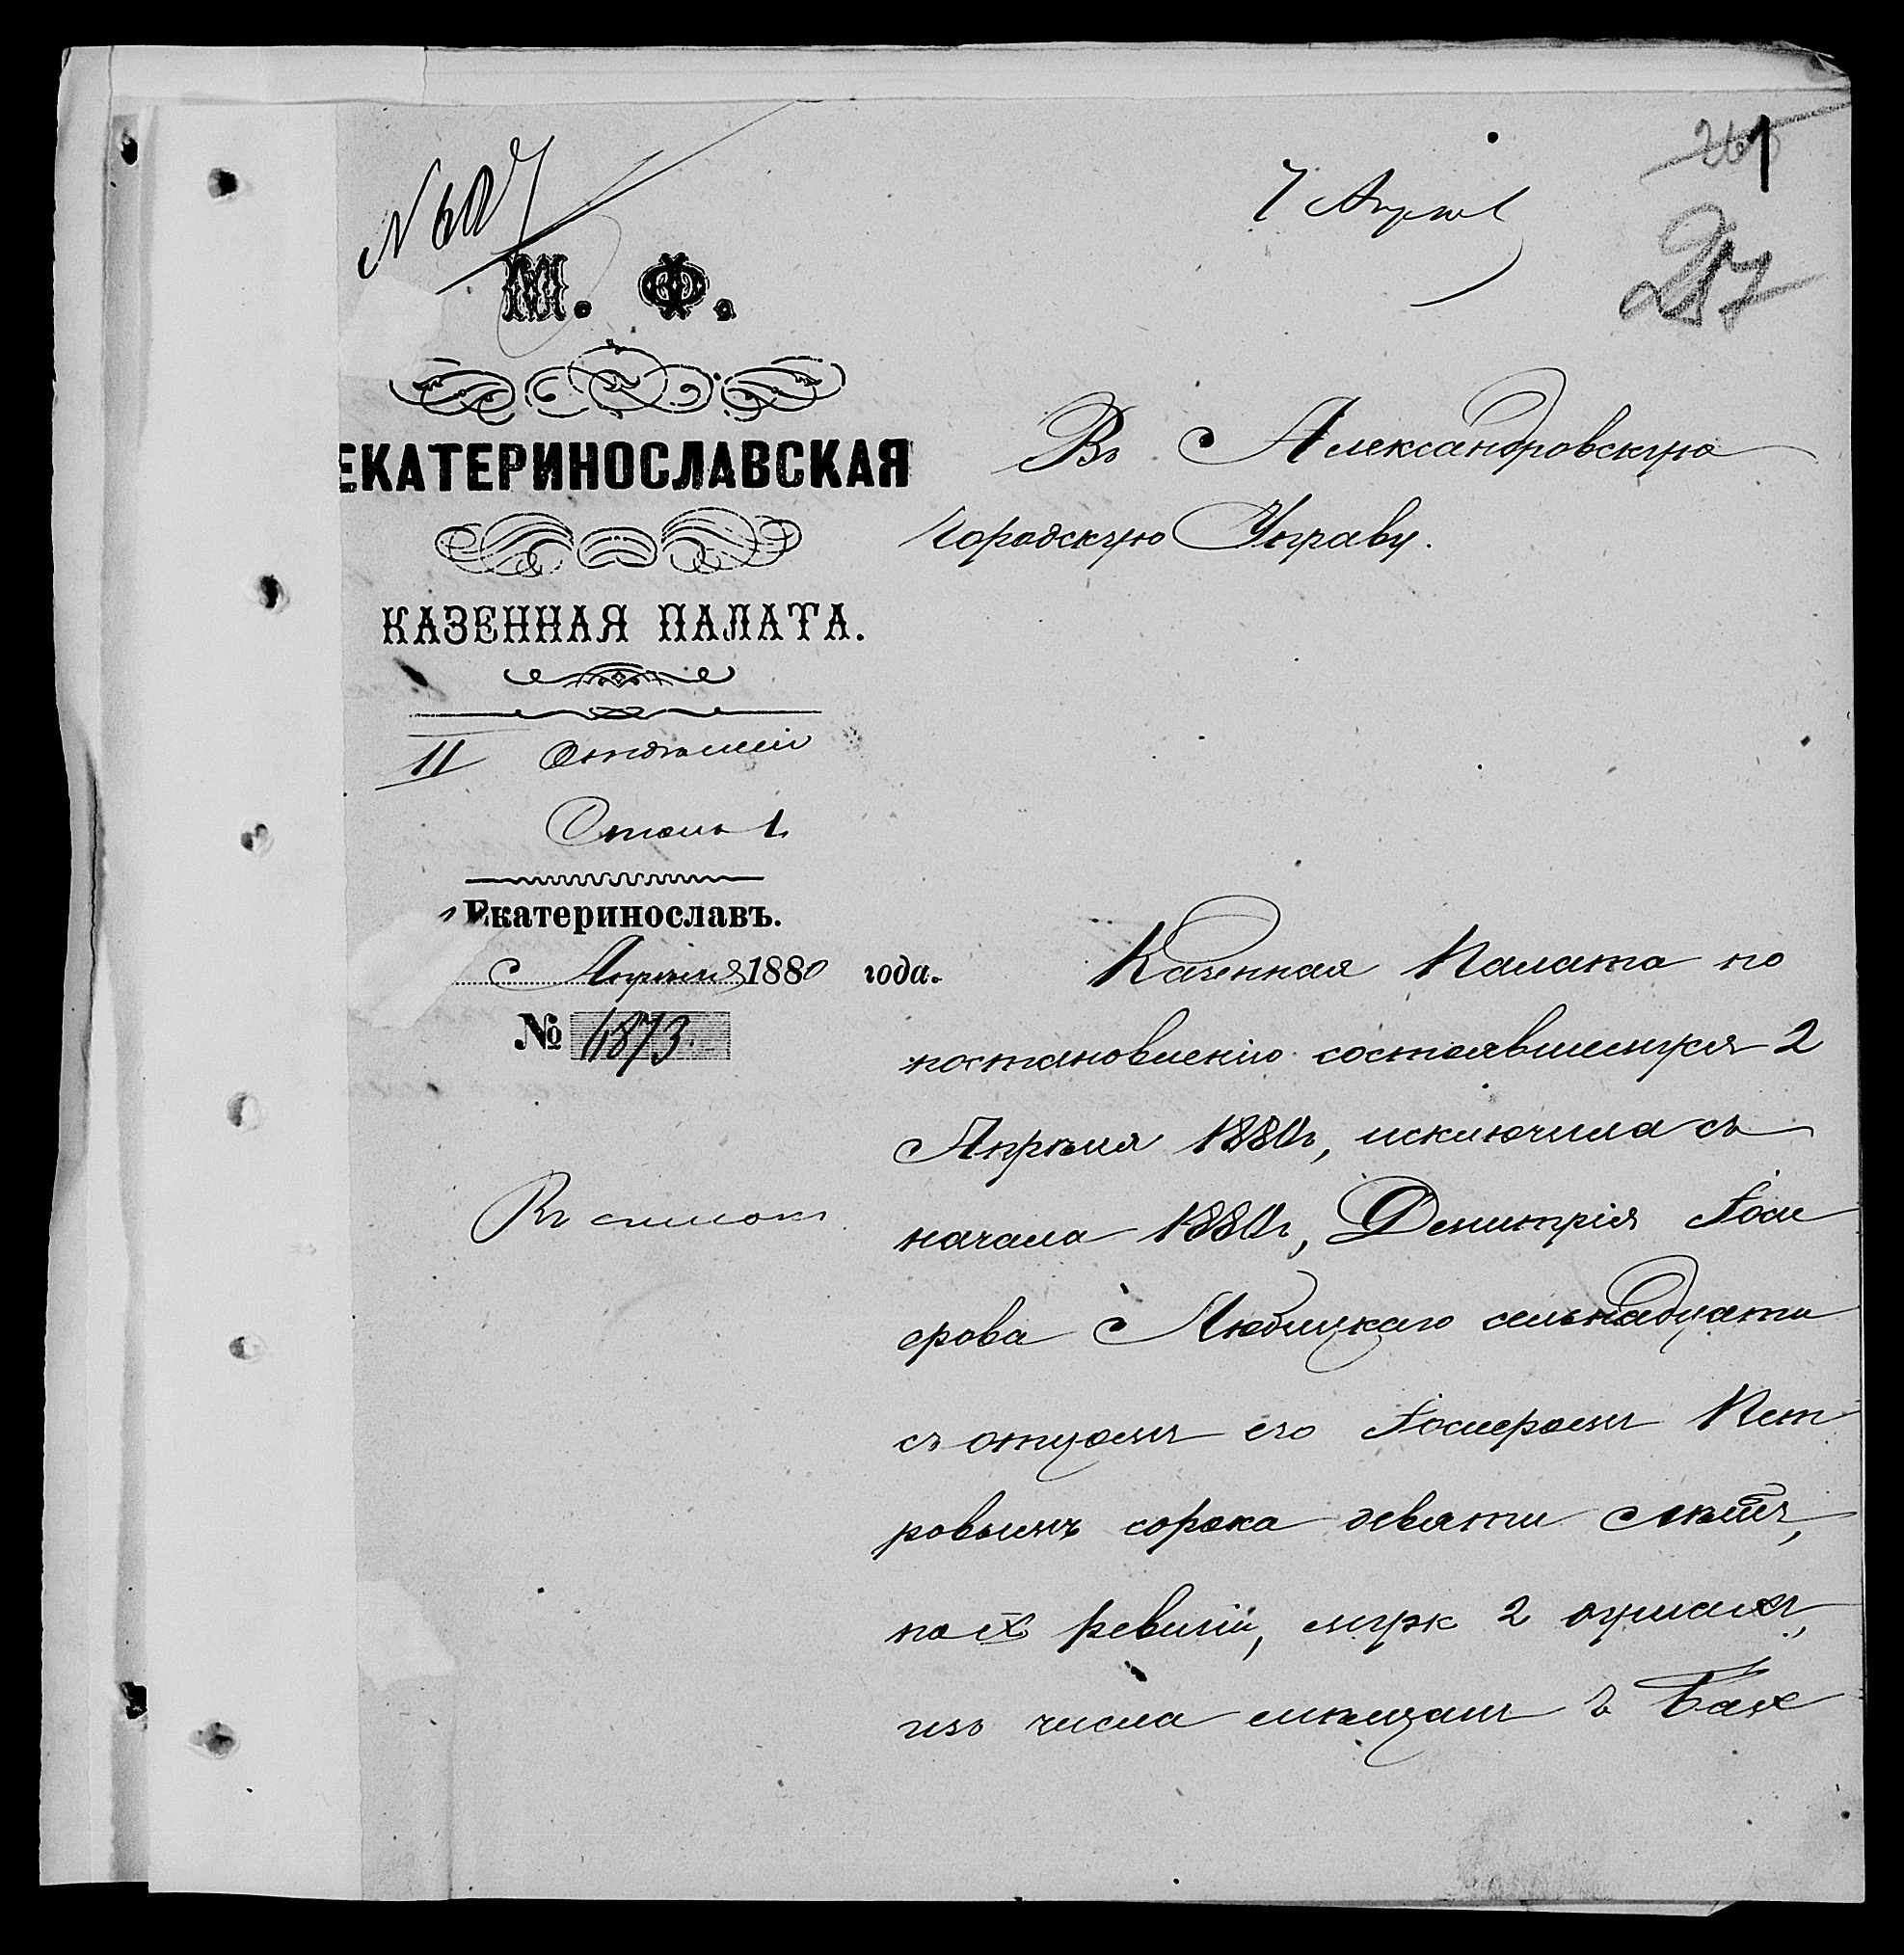 № 607
7 Апрѣл
217
М. Ф.
ЕКАТЕРИНОСЛАВСКАЯ
КАЗЕННАЯ ПАЛАТА.
II Отдѣленіе
Столъ 1.
Екатеринославъ.
Апрѣля 1880 года.
№ 4873.
Къ списку
Въ Александровскую
Городскую Управу.
Казенная Палата по
постановленію состоявшемуся 2
Апрѣля 1880г, исключила съ
начала 1880г, Демитрія Іоси
ерова Любицкаго
съ отцомъ его Іосиеромъ Пет
ровымъ сорока девяти лѣтъ,
по IX ревизіи, муж 2 душами,
изъ числа мѣщанъ г. Бах